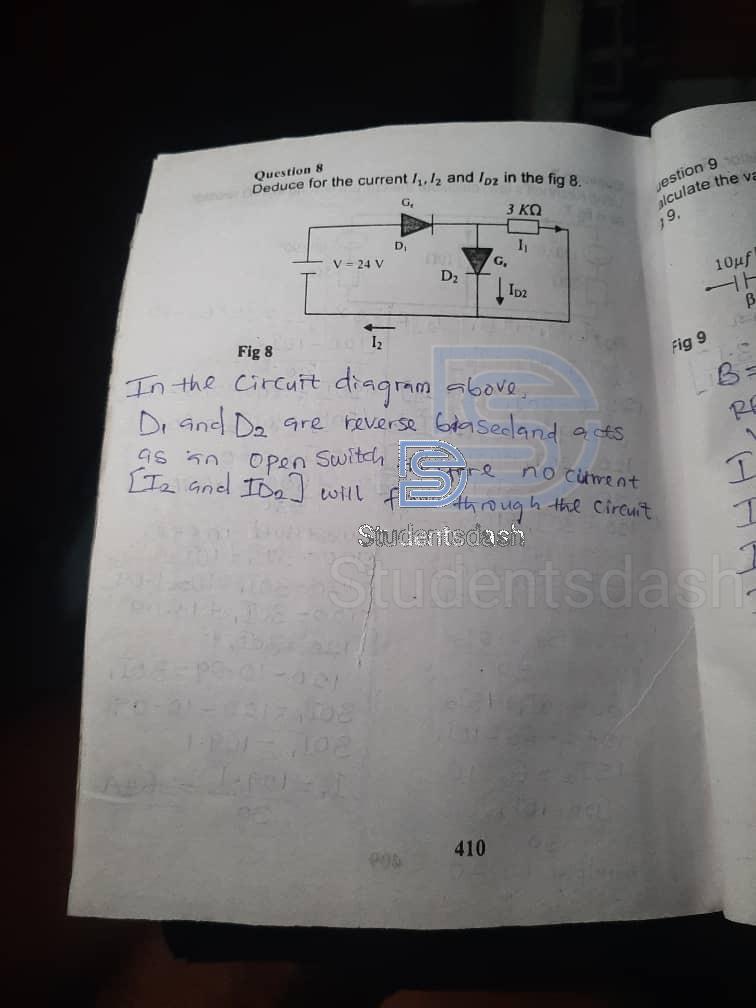 Question 8
Deduce for the current I₁, I₂ and I_D2 in the fig 8.
Gₑ
3 KΩ
D₁
I₁
V = 24 V
D₂
Gₑ
I_D2
I₂
Fig 8
In the Circuit diagram above,
D₁ and D₂ are reverse biased and acts
as an open switch no current
[I₂ and ID₂] will through the circuit
Studentsdash
Studentsdash
410
estion 9
alculate the va
9.
10μf
Fig 9
B =